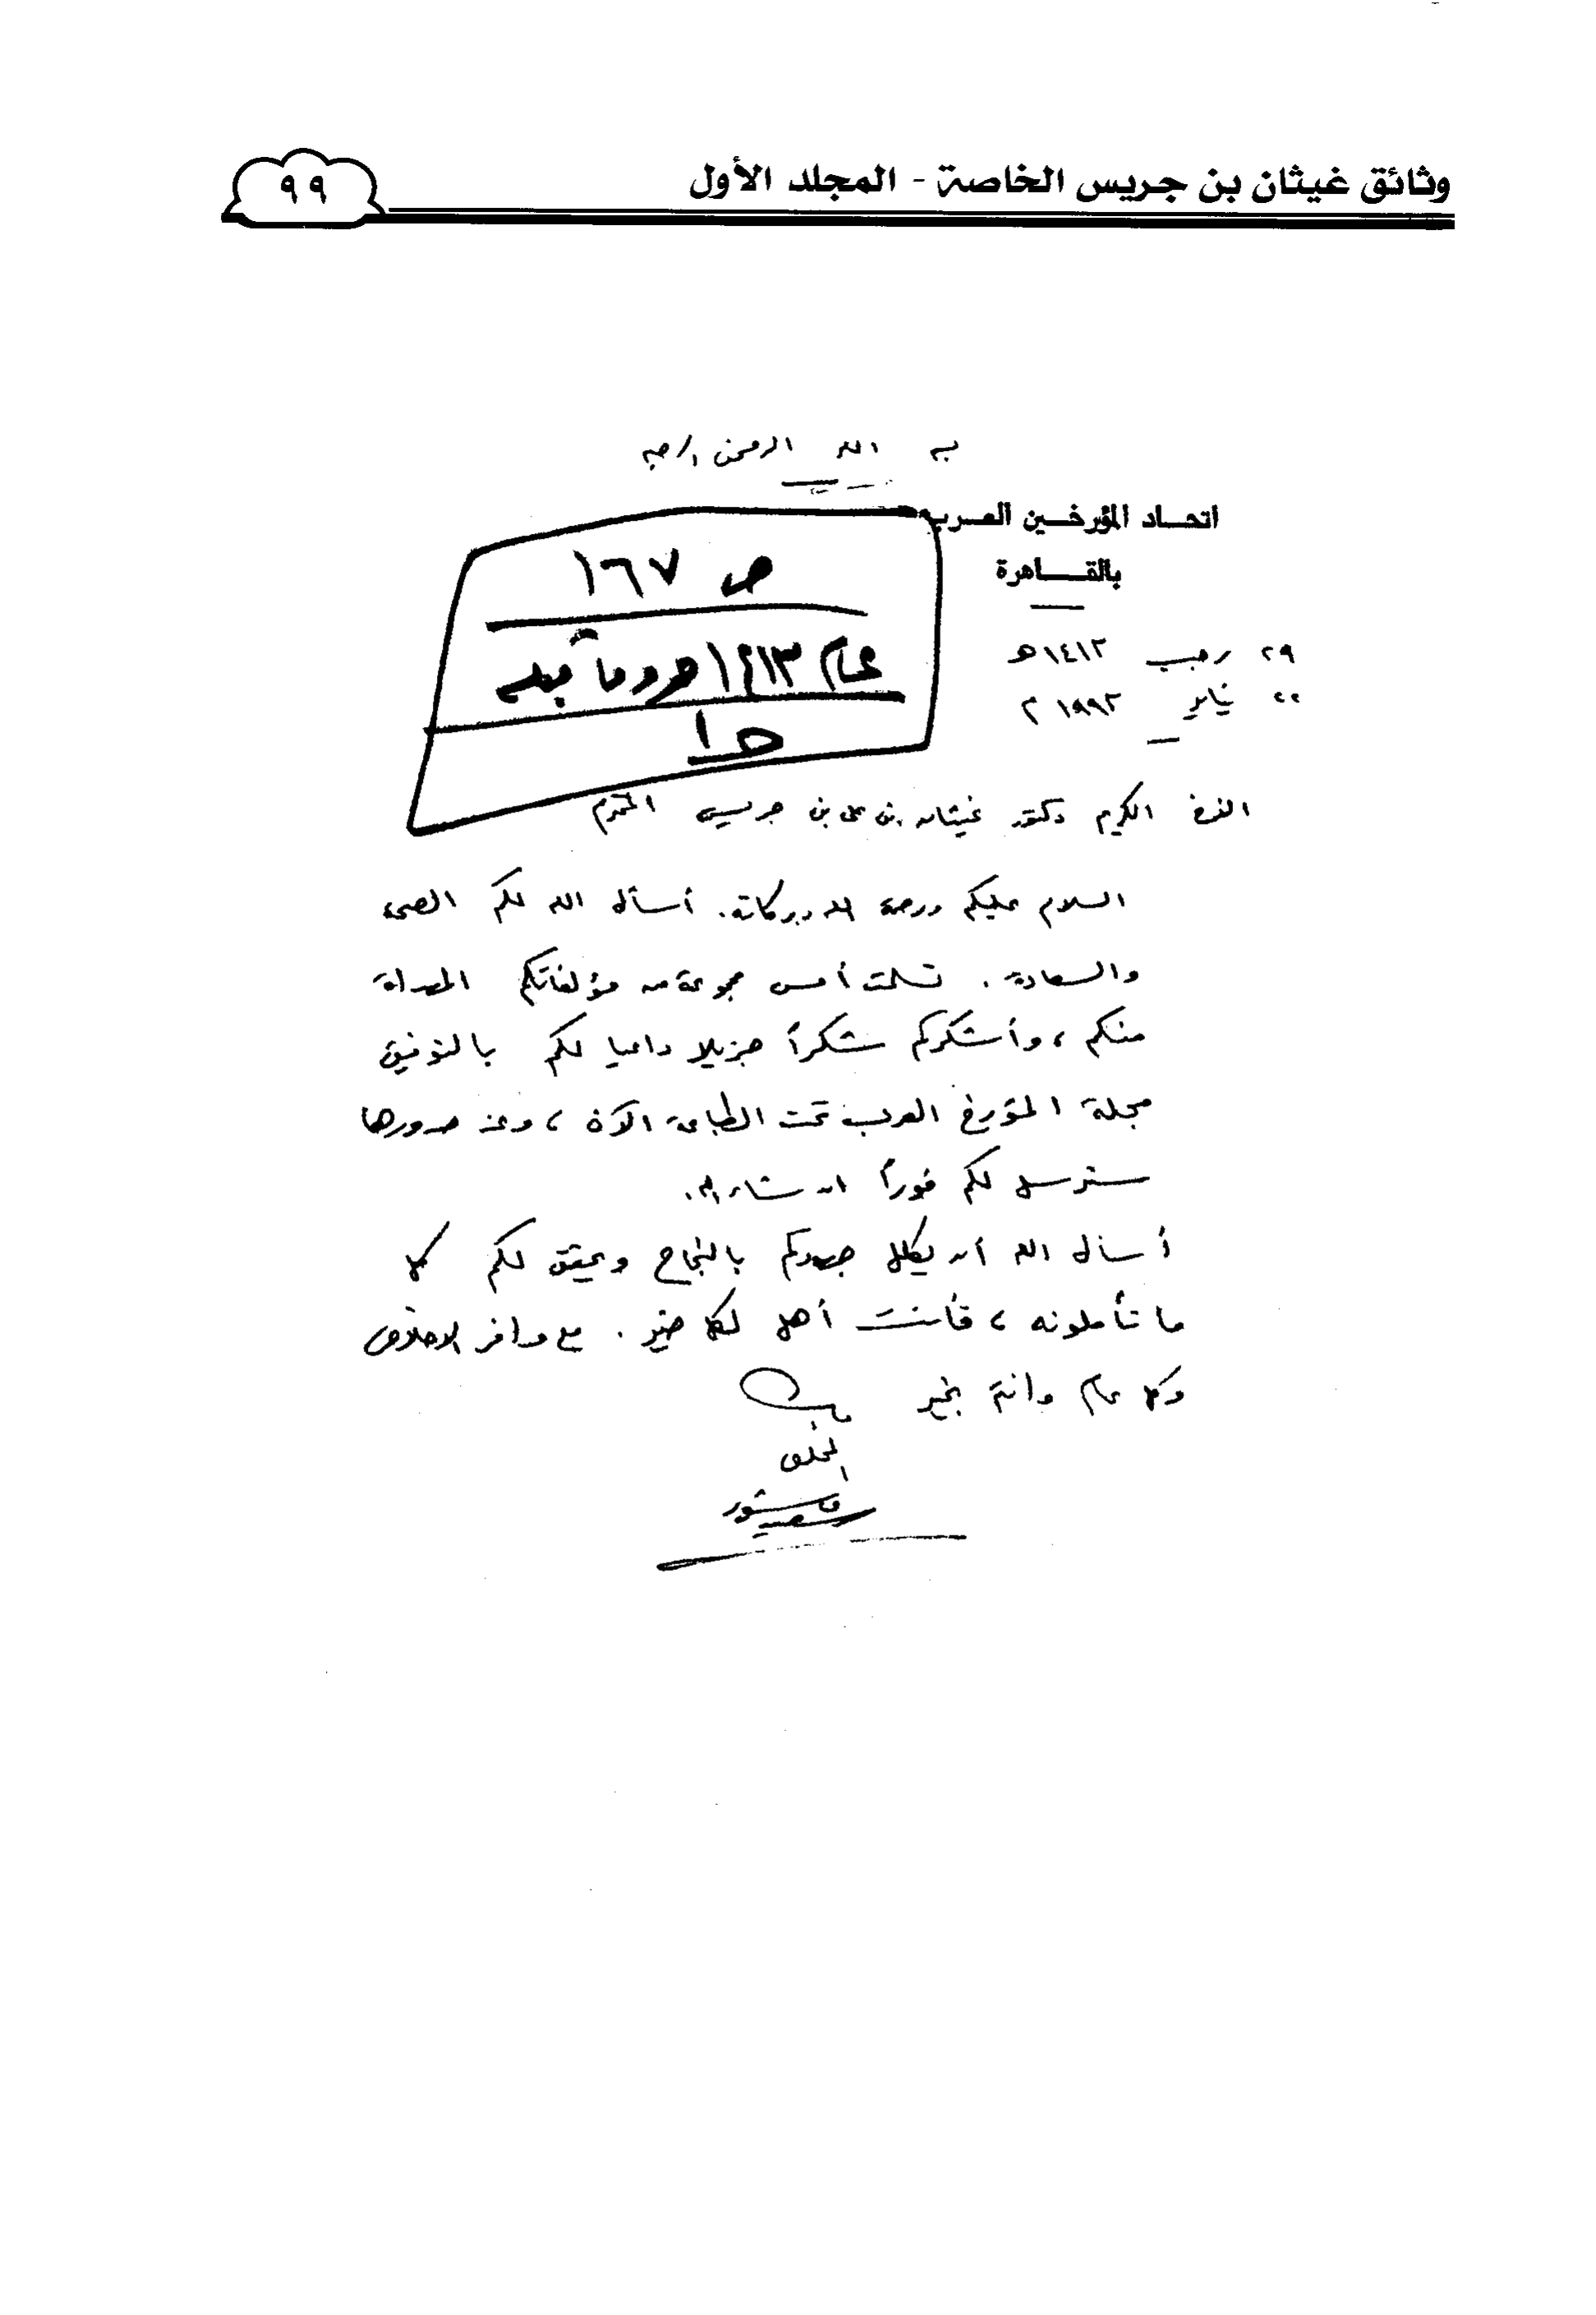 وثائق غيثان بن جريس الخاصة - المجلد الأول
٩٩
بسم الله الرحمن الرحيم
اتحاد المؤرخين العرب
بالقاهرة
ص ١٦٧
عام ١٤١٣هـ وما قبله
ح١
٢٩ رجب ١٤١٣هـ
٢٢ يناير ١٩٩٣م
الأخ الكريم دكتور غيثان بن علي بن جريس المحترم
السلام عليكم ورحمة الله وبركاته. أسأل الله لكم الصحة
والسعادة. تسلمت أمس مجموعة من مؤلفاتكم المهداة
منكم، وأشكركم شكراً جزيلا داعيا لكم بالتوفيق
مجلة المؤرخ العربي تحت الطباعة الآن، وعند صدورها
سترسل لكم فوراً ان شاء الله.
أسأل الله أن يكلل جهودكم بالنجاح ويحقق لكم كل
ما تأملونه، فأنت أهل لكل خير. مع وافر الاخلاص
وكل عام وانتم بخير
المخلص
سعيد عاشور